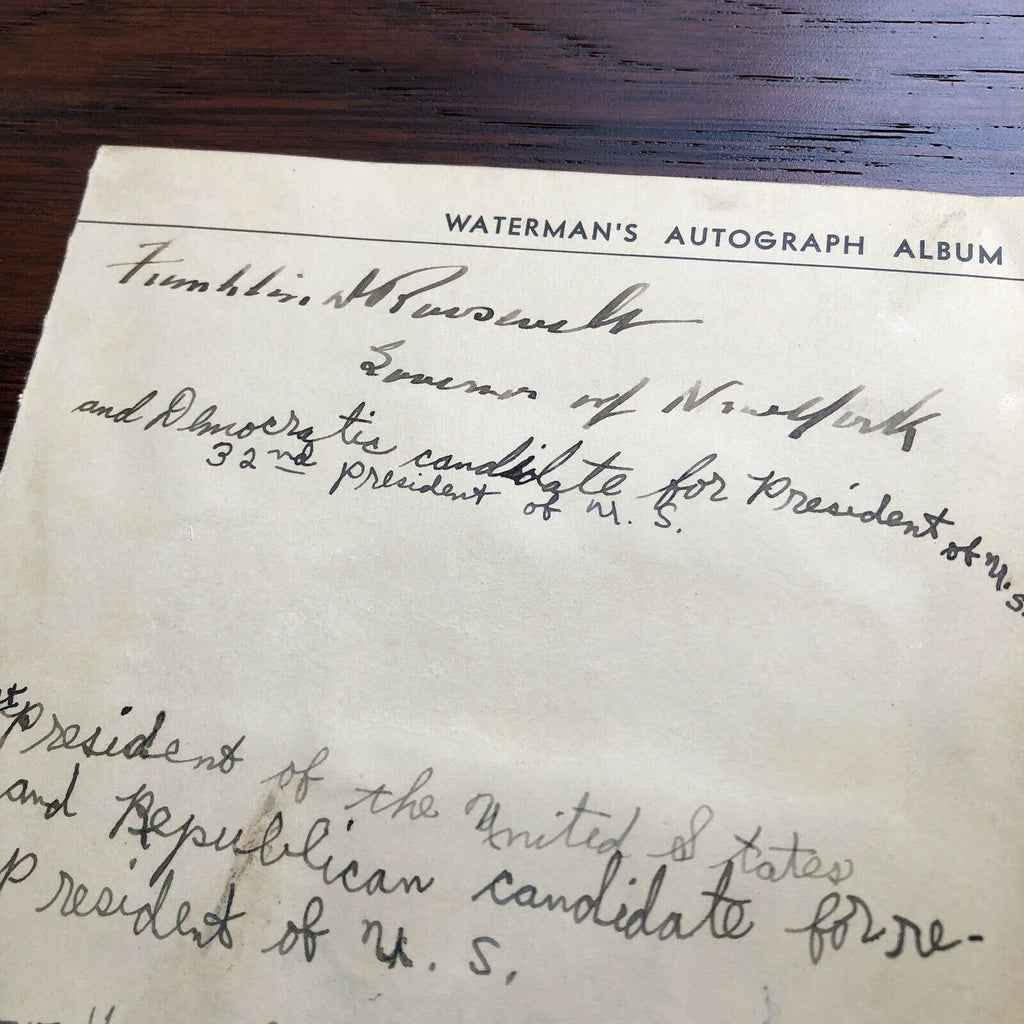 WATERMAN'S AUTOGRAPH ALBUM
Franklin D Roosevelt
Governor of New York
and Democratic candidate for President of U.S.
32nd President of U. S.
President of the United States
and Republican candidate for re-
President of U. S.